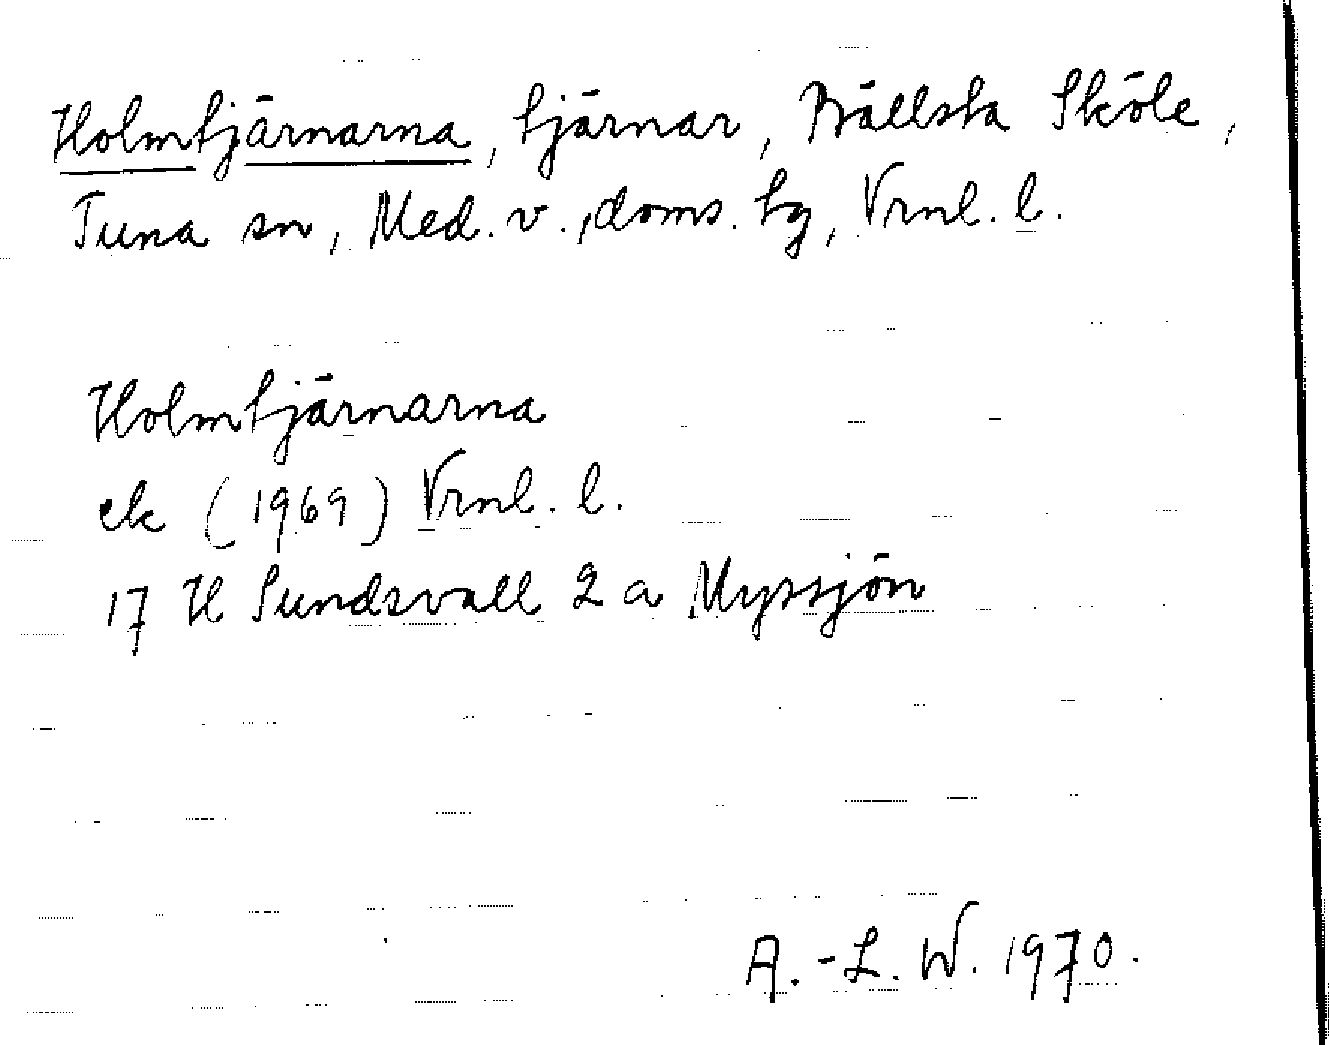 Holmtjärnarna, tjärnar, Bällsta Sköle,
Tuna sn, Med. v., doms. tg, Vrnl. l.
Holmtjärnarna
ek (1969) Vrnl. l.
17 H Sundsvall 2 a Myssjön
A.-L. W. 1970.